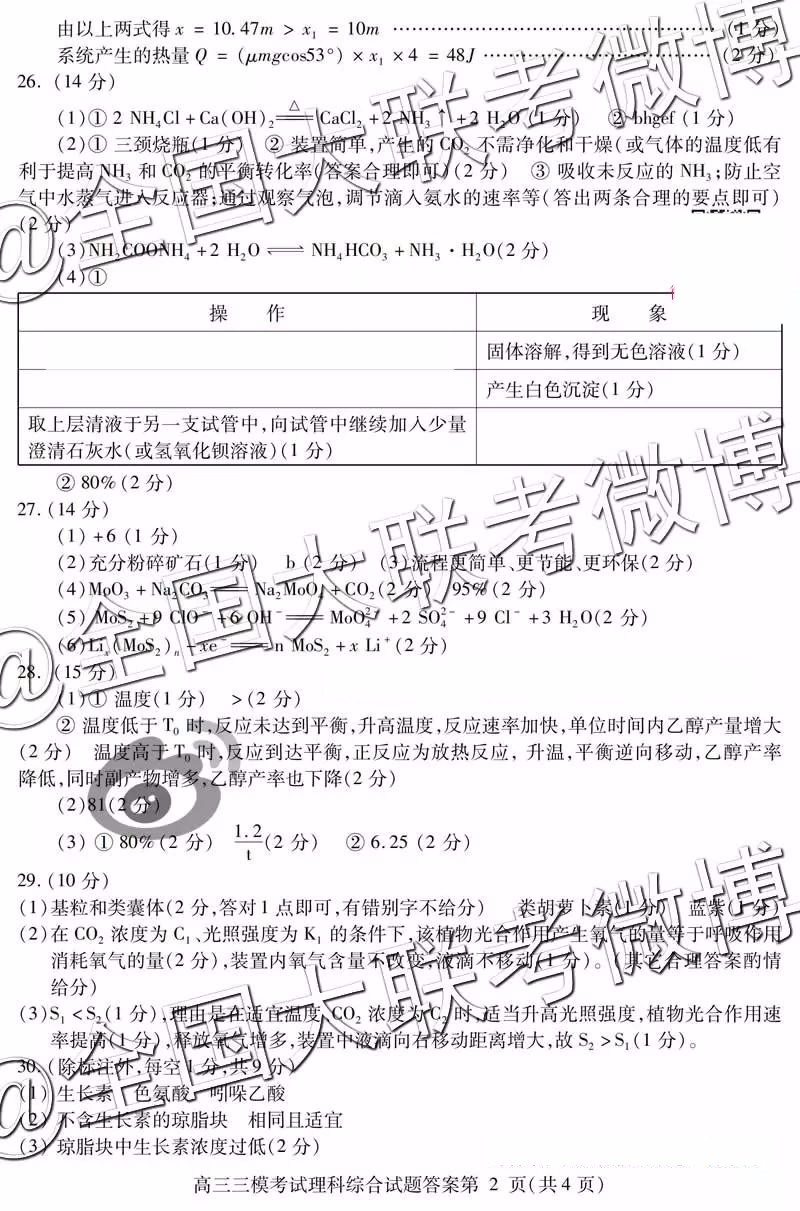 由以上两式得 x = 10.47m > x₁ = 10m ……………………………………… (1 分)
系统产生的热量 Q = (μmgcos53°) × x₁ × 4 = 48J ………………………… (2 分)
26. (14 分)
(1)① 2 NH₄Cl + Ca(OH)₂ ≜ CaCl₂ + 2 NH₃↑ + 2 H₂O (1 分) ② bhgef (1 分)
(2)① 三颈烧瓶(1 分) ② 装置简单,产生的 CO₂ 不需净化和干燥(或气体的温度低有
利于提高 NH₃ 和 CO₂ 的平衡转化率(答案合理即可)(2 分) ③ 吸收未反应的 NH₃;防止空
气中水蒸气进入反应器;通过观察气泡,调节滴入氨水的速率等(答出两条合理的要点即可)
(2 分)
(3)NH₂COONH₄ + 2 H₂O ⇌ NH₄HCO₃ + NH₃·H₂O(2 分)
(4)①
操 作 现 象
固体溶解,得到无色溶液(1 分)
产生白色沉淀(1 分)
取上层清液于另一支试管中,向试管中继续加入少量
澄清石灰水(或氢氧化钡溶液)(1 分)
② 80% (2 分)
27. (14 分)
(1) +6 (1 分)
(2)充分粉碎矿石(1 分) b (2 分) (3)流程更简单、更节能、更环保(2 分)
(4)MoO₃ + Na₂CO₃ == Na₂MoO₄ + CO₂(2 分) 95%(2 分)
(5) MoS₂ + 9 ClO⁻ + 6 OH⁻ == MoO₄²⁻ + 2 SO₄²⁻ + 9 Cl⁻ + 3 H₂O(2 分)
(6)Liₓ(MoS₂)ₙ - xe⁻ == n MoS₂ + x Li⁺(2 分)
28. (15 分)
(1)① 温度(1 分) >(2 分)
② 温度低于 T₀ 时,反应未达到平衡,升高温度,反应速率加快,单位时间内乙醇产量增大
(2 分) 温度高于 T₀ 时,反应到达平衡,正反应为放热反应, 升温,平衡逆向移动,乙醇产率
降低,同时副产物增多,乙醇产率也下降(2 分)
(2)81(2 分)
(3) ① 80% (2 分) 1.2/t (2 分) ② 6.25 (2 分)
29. (10 分)
(1)基粒和类囊体(2 分,答对 1 点即可,有错别字不给分) 类胡萝卜素(1 分) 蓝紫(1 分)
(2)在 CO₂ 浓度为 C₁、光照强度为 K₁ 的条件下,该植物光合作用产生氧气的量等于呼吸作用
消耗氧气的量(2 分),装置内氧气含量不改变,液滴不移动(1 分)。(其它合理答案酌情
给分)
(3)S₁ < S₂(1 分),理由是在适宜温度、CO₂ 浓度为 C₂ 时,适当升高光照强度,植物光合作用速
率提高(1 分),释放氧气增多,装置中液滴向右移动距离增大,故 S₂ > S₁(1 分)。
30. (除标注外,每空 1 分,共 9 分)
(1) 生长素 色氨酸 吲哚乙酸
(2) 不含生长素的琼脂块 相同且适宜
(3) 琼脂块中生长素浓度过低(2 分)
高三三模考试理科综合试题答案第 2 页(共 4 页)
@全国大联考微博
@全国大联考微博
@全国大联考微博